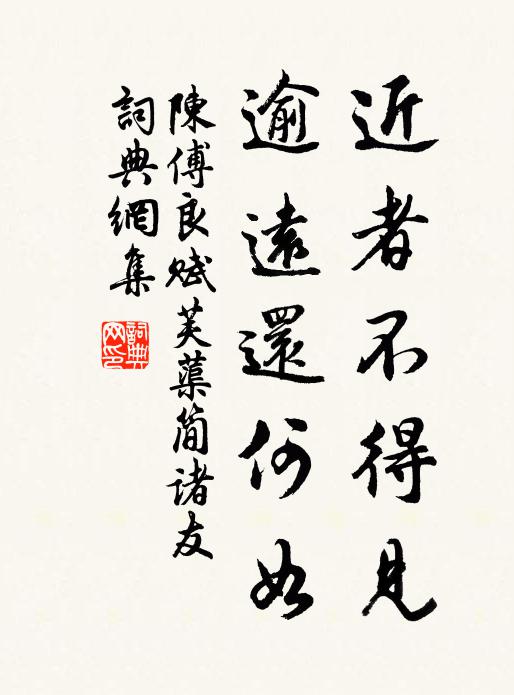 近者不得見
逾遠還何如
陳傅良賦芙蕖簡諸友
詞典網集
詞典網印